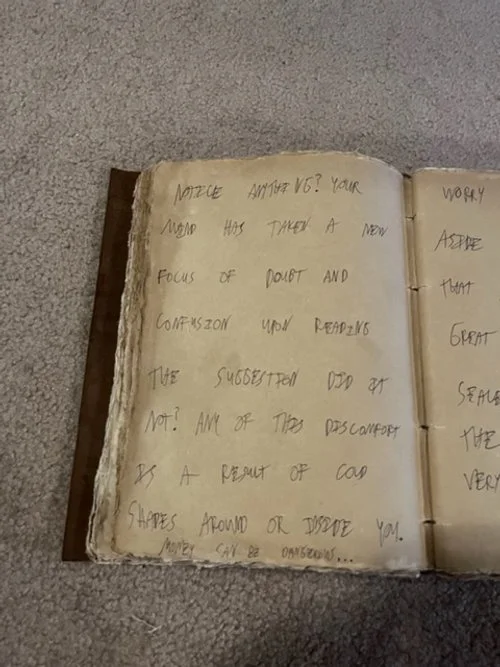 NOTICE ANYTHING? YOUR
MIND HAS TAKEN A NEW
FOCUS OF DOUBT AND
CONFUSION UPON READING
THE SUGGESTION DID IT
NOT? ANY OF THIS DISCOMFORT
IS A RESULT OF COLD
SHAPES AROUND OR INSIDE YOU.
MONEY CAN BE DANGEROUS...
WORRY
ASIDE
THAT
GREAT
THE
VERY